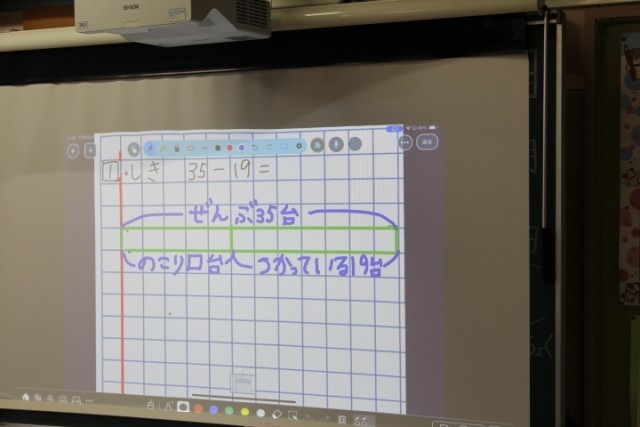 EPSON
1 しき 35-19=
ぜんぶ35台
のこり口台 つかっている19台